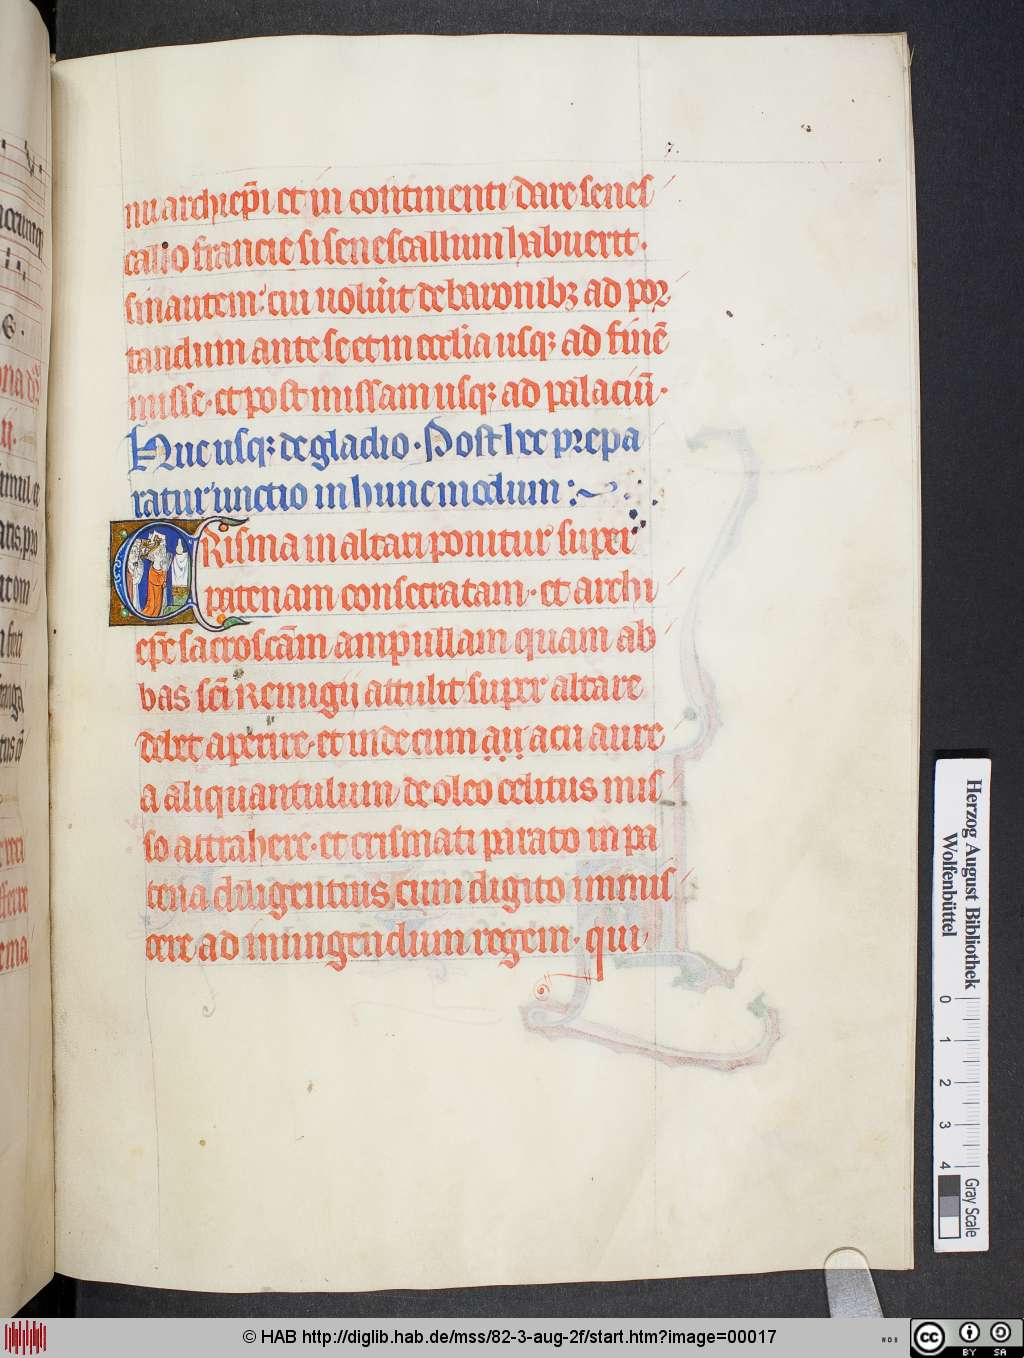 nu archiep̄i et in continenti dare senes
callo francie si senescallum habuerit.
sin autem: cui uoluerit de baronibꝫ ad por
tandum ante se et in eccl̄ia usqꝫ ad finē
misse. et post missam usqꝫ ad palaciū.
Huc usqꝫ de gladio. Post hec prepa
ratur unctio in hunc modum:
Crisma in altari ponitur super
patenam consecratam. et archi
ep̄c sacroscām ampullam quam ab
bas sc̄i Remigii attulit super altare
debet aperire. et inde cum acu aure
a aliquantulum de oleo celitus mis
so attrahere. et crismati parato in pa
tena diligentius cum digito immis
cere ad inungendum regem. qui
Herzog August Bibliothek
Wolfenbüttel
0 1 2 3 4
Gray Scale
© HAB http://diglib.hab.de/mss/82-3-aug-2f/start.htm?image=00017
WDB
cc BY SA